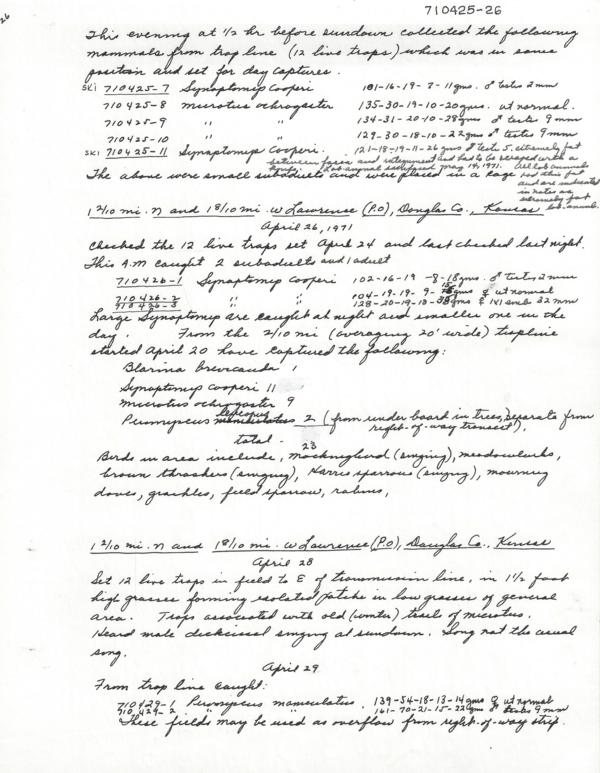 710425-26
26
This evening at 1/2 hr before sundown collected the following
mammals from trap line (12 live traps) which was in same
position and set for day captures.
SKI 710425-7 Synaptomys cooperi 101-16-19-7-11gms. ♂ testes 2mm
710425-8 microtus ochrogaster 135-30-19-10-20gms. ut normal.
710425-9 " " 134-31-20-10-28gms ♂ testes 9mm
710425-10 " " 129-30-18-10-22gms ♂ testes 9mm
SKI 710425-11 Synaptomys cooperi. 121-18-19-11-26gms ♂ testes 5. extremely fat
between fascia and integument and had to be scraped with a
knife. Lab animal sacrificed may 19, 1971. All lab animals
had this fat
and are indicated
in notes as
extremely fat
lab. animal.
The above were small subadults and were placed in a cage
1 2/10 mi. N and 1 8/10 mi. W Lawrence (P.O), Douglas Co., Kansas
April 26, 1971
Checked the 12 live traps set April 24 and last checked last night.
This A.M caught 2 subadults and 1 adult
710426-1 Synaptomys cooperi 102-16-19-8-18gms. ♂ testes 2mm
710426-2 " " 104-19-19-9-15gms ♀ ut normal
710426-3 " " 128-20-19-13-38gms ♀ 1x1 emb 32mm
Large Synaptomys are caught at night and smaller one in the
day. From the 2/10 mi (averaging 20' wide) trapline
started April 20 have captured the following:
Blarina brevicauda 1
Synaptomys cooperi 11
microtus ochrogaster 9
Peromyscus leucopus maniculatus 2 (from under board in trees, separate from
right-of-way transect).
total - 23
Birds in area include, mockingbird (singing), meadowlarks,
brown thrashers (singing), Harris sparrows (singing), mourning
doves, grackles, field sparrow, robins,
1 2/10 mi. N and 1 8/10 mi. W Lawrence (P.O), Douglas Co., Kansas
April 28
Set 12 live traps in field to E of transmission line, in 1 1/2 foot
high grasses forming isolated patches in low grasses of general
area. Traps associated with old (winter) trails of microtus.
Heard male dickcissel singing at sundown. Song not the usual
song.
April 29
From trap line caught:
710429-1 Peromyscus maniculatus. 139-54-18-13-14gms ♀ ut normal
710429-2 " " 161-70-21-15-22gms ♂ testes 9mm
These fields may be used as overflow from right-of-way strip.